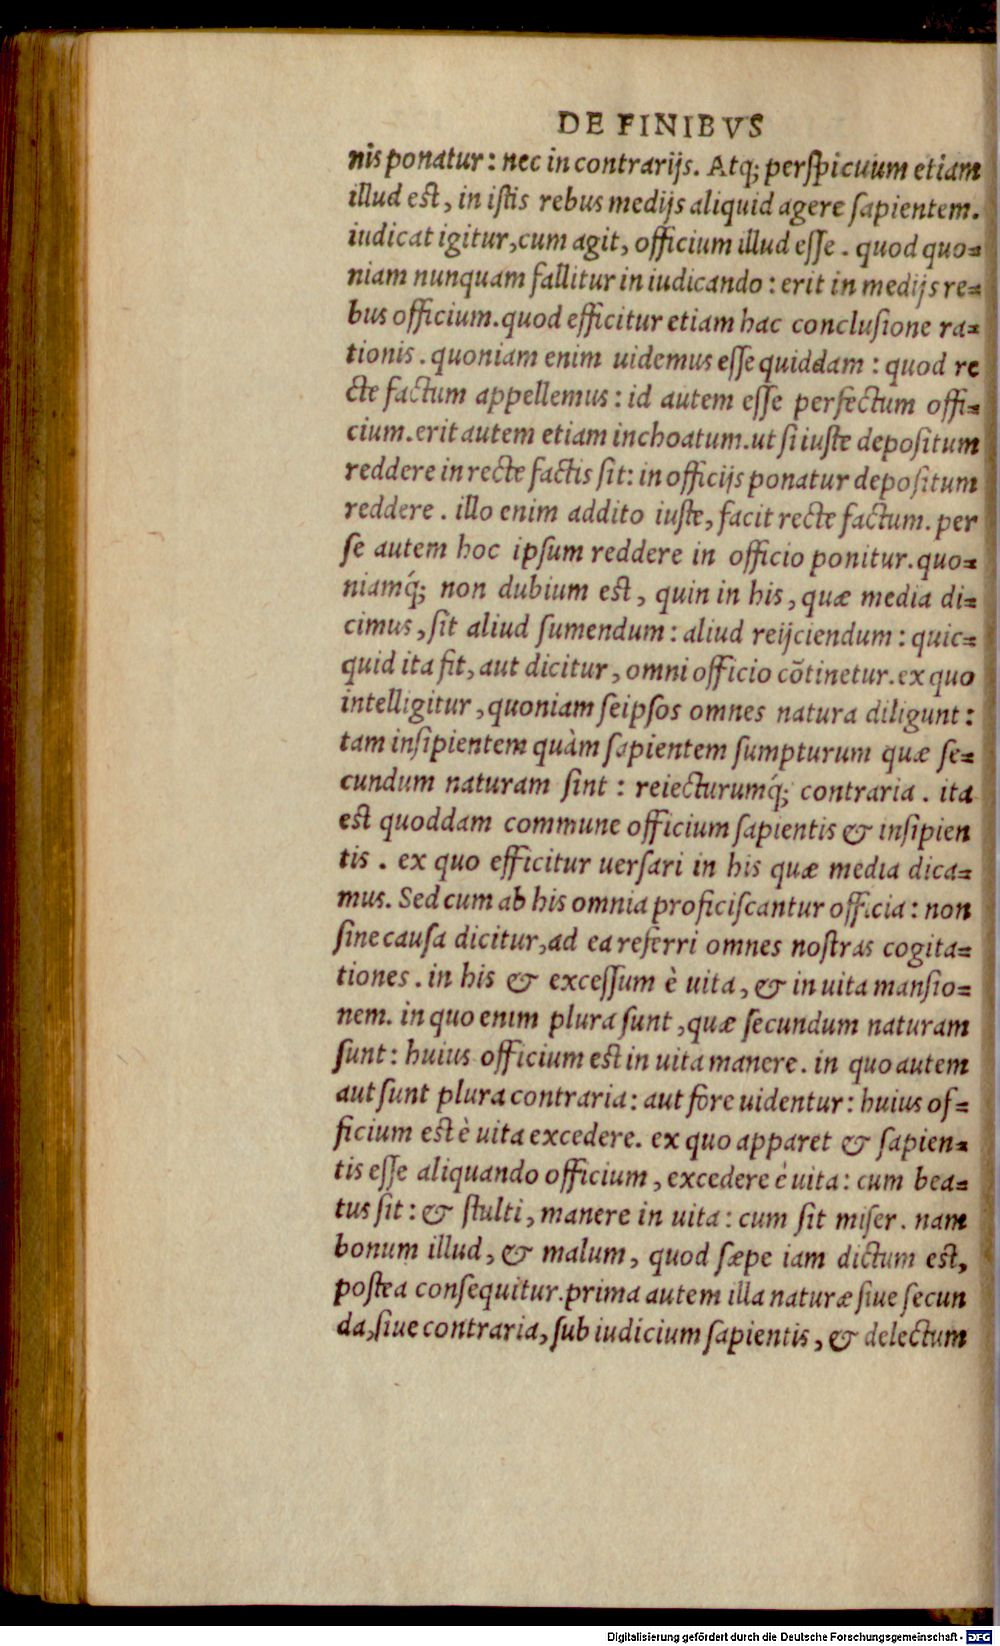 DE FINIBVS
nis ponatur: nec in contrarijs. Atq; perspicuum etiam
illud est, in istis rebus medijs aliquid agere sapientem.
iudicat igitur, cum agit, officium illud esse. quod quo=
niam nunquam fallitur in iudicando: erit in medijs re=
bus officium. quod efficitur etiam hac conclusione ra=
tionis. quoniam enim uidemus esse quiddam: quod re
cte factum appellemus: id autem esse perfectum offi=
cium. erit autem etiam inchoatum. ut si iuste depositum
reddere in recte factis sit: in officijs ponatur depositum
reddere. illo enim addito iuste, facit recte factum. per
se autem hoc ipsum reddere in officio ponitur. quo=
niamq́; non dubium est, quin in his, quæ media di=
cimus, sit aliud sumendum: aliud reijciendum: quic=
quid ita fit, aut dicitur, omni officio cõtinetur. ex quo
intelligitur, quoniam seipsos omnes natura diligunt:
tam insipientem quàm sapientem sumpturum quæ se=
cundum naturam sint: reiecturumq́; contraria. ita
est quoddam commune officium sapientis & insipien
tis. ex quo efficitur uersari in his quæ media dica=
mus. Sed cum ab his omnia proficiscantur officia: non
sine causa dicitur, ad ea referri omnes nostras cogita=
tiones. in his & excessum è uita, & in uita mansio=
nem. in quo enim plura sunt, quæ secundum naturam
sunt: huius officium est in uita manere. in quo autem
aut sunt plura contraria: aut fore uidentur: huius of=
ficium est è uita excedere. ex quo apparet & sapien=
tis esse aliquando officium, excedere è uita: cum bea=
tus sit: & stulti, manere in uita: cum sit miser. nam
bonum illud, & malum, quod sæpe iam dictum est,
postea consequitur. prima autem illa naturæ siue secun
da, siue contraria, sub iudicium sapientis, & delectum
Digitalisierung gefördert durch die Deutsche Forschungsgemeinschaft - DFG